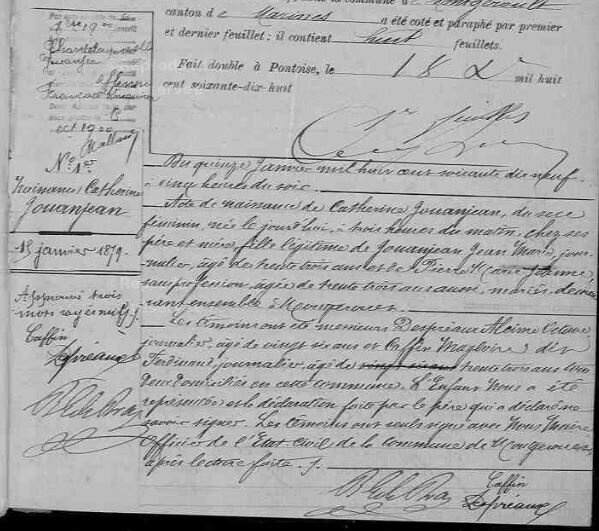 canton de Marines a été coté et paraphé par premier
et dernier feuillet ; il contient huit feuillets.
Fait double à Pontoise, le 18 mil huit
cent soixante-dix-huit
oct 1900
N° 1er
Naissance Catherine
Jouanjean
15 janvier 1879.
Approuvé trois
mots rayés nuls
Caffin
Despréaux
Du quinze Janvier mil huit cent soixante dix neuf
à cinq heures du soir.
Acte de naissance de Catherine Jouanjean, du sexe
féminin, née le jourd'hui, à trois heures du matin, chez ses
père et mère, fille légitime de Jouanjean Jean Marie, jour-
nalier, âgé de trente trois ans et de Pierre Marie Jeanne
sans profession, âgée de trente trois ans aussi, mariés, demeu-
rant ensemble à
Les témoins ont été messieurs Despréaux Alcime
journalier, âgé de vingt six ans et Caffin dit
Ferdinand, journalier, âgé de vingt six ans trente trois ans tous
deux domiciliés en cette commune. L'Enfant Nous a été
représentée et la déclaration faite par le père qui a déclaré ne
savoir signer. Les témoins ont seuls signé avec Nous Maire
Officier de l'Etat Civil de la commune de
après lecture faite.
Caffin
Despréaux